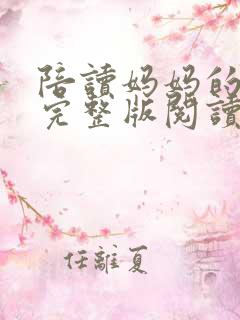 陪讀妈妈的
完整版閱讀
任離夏